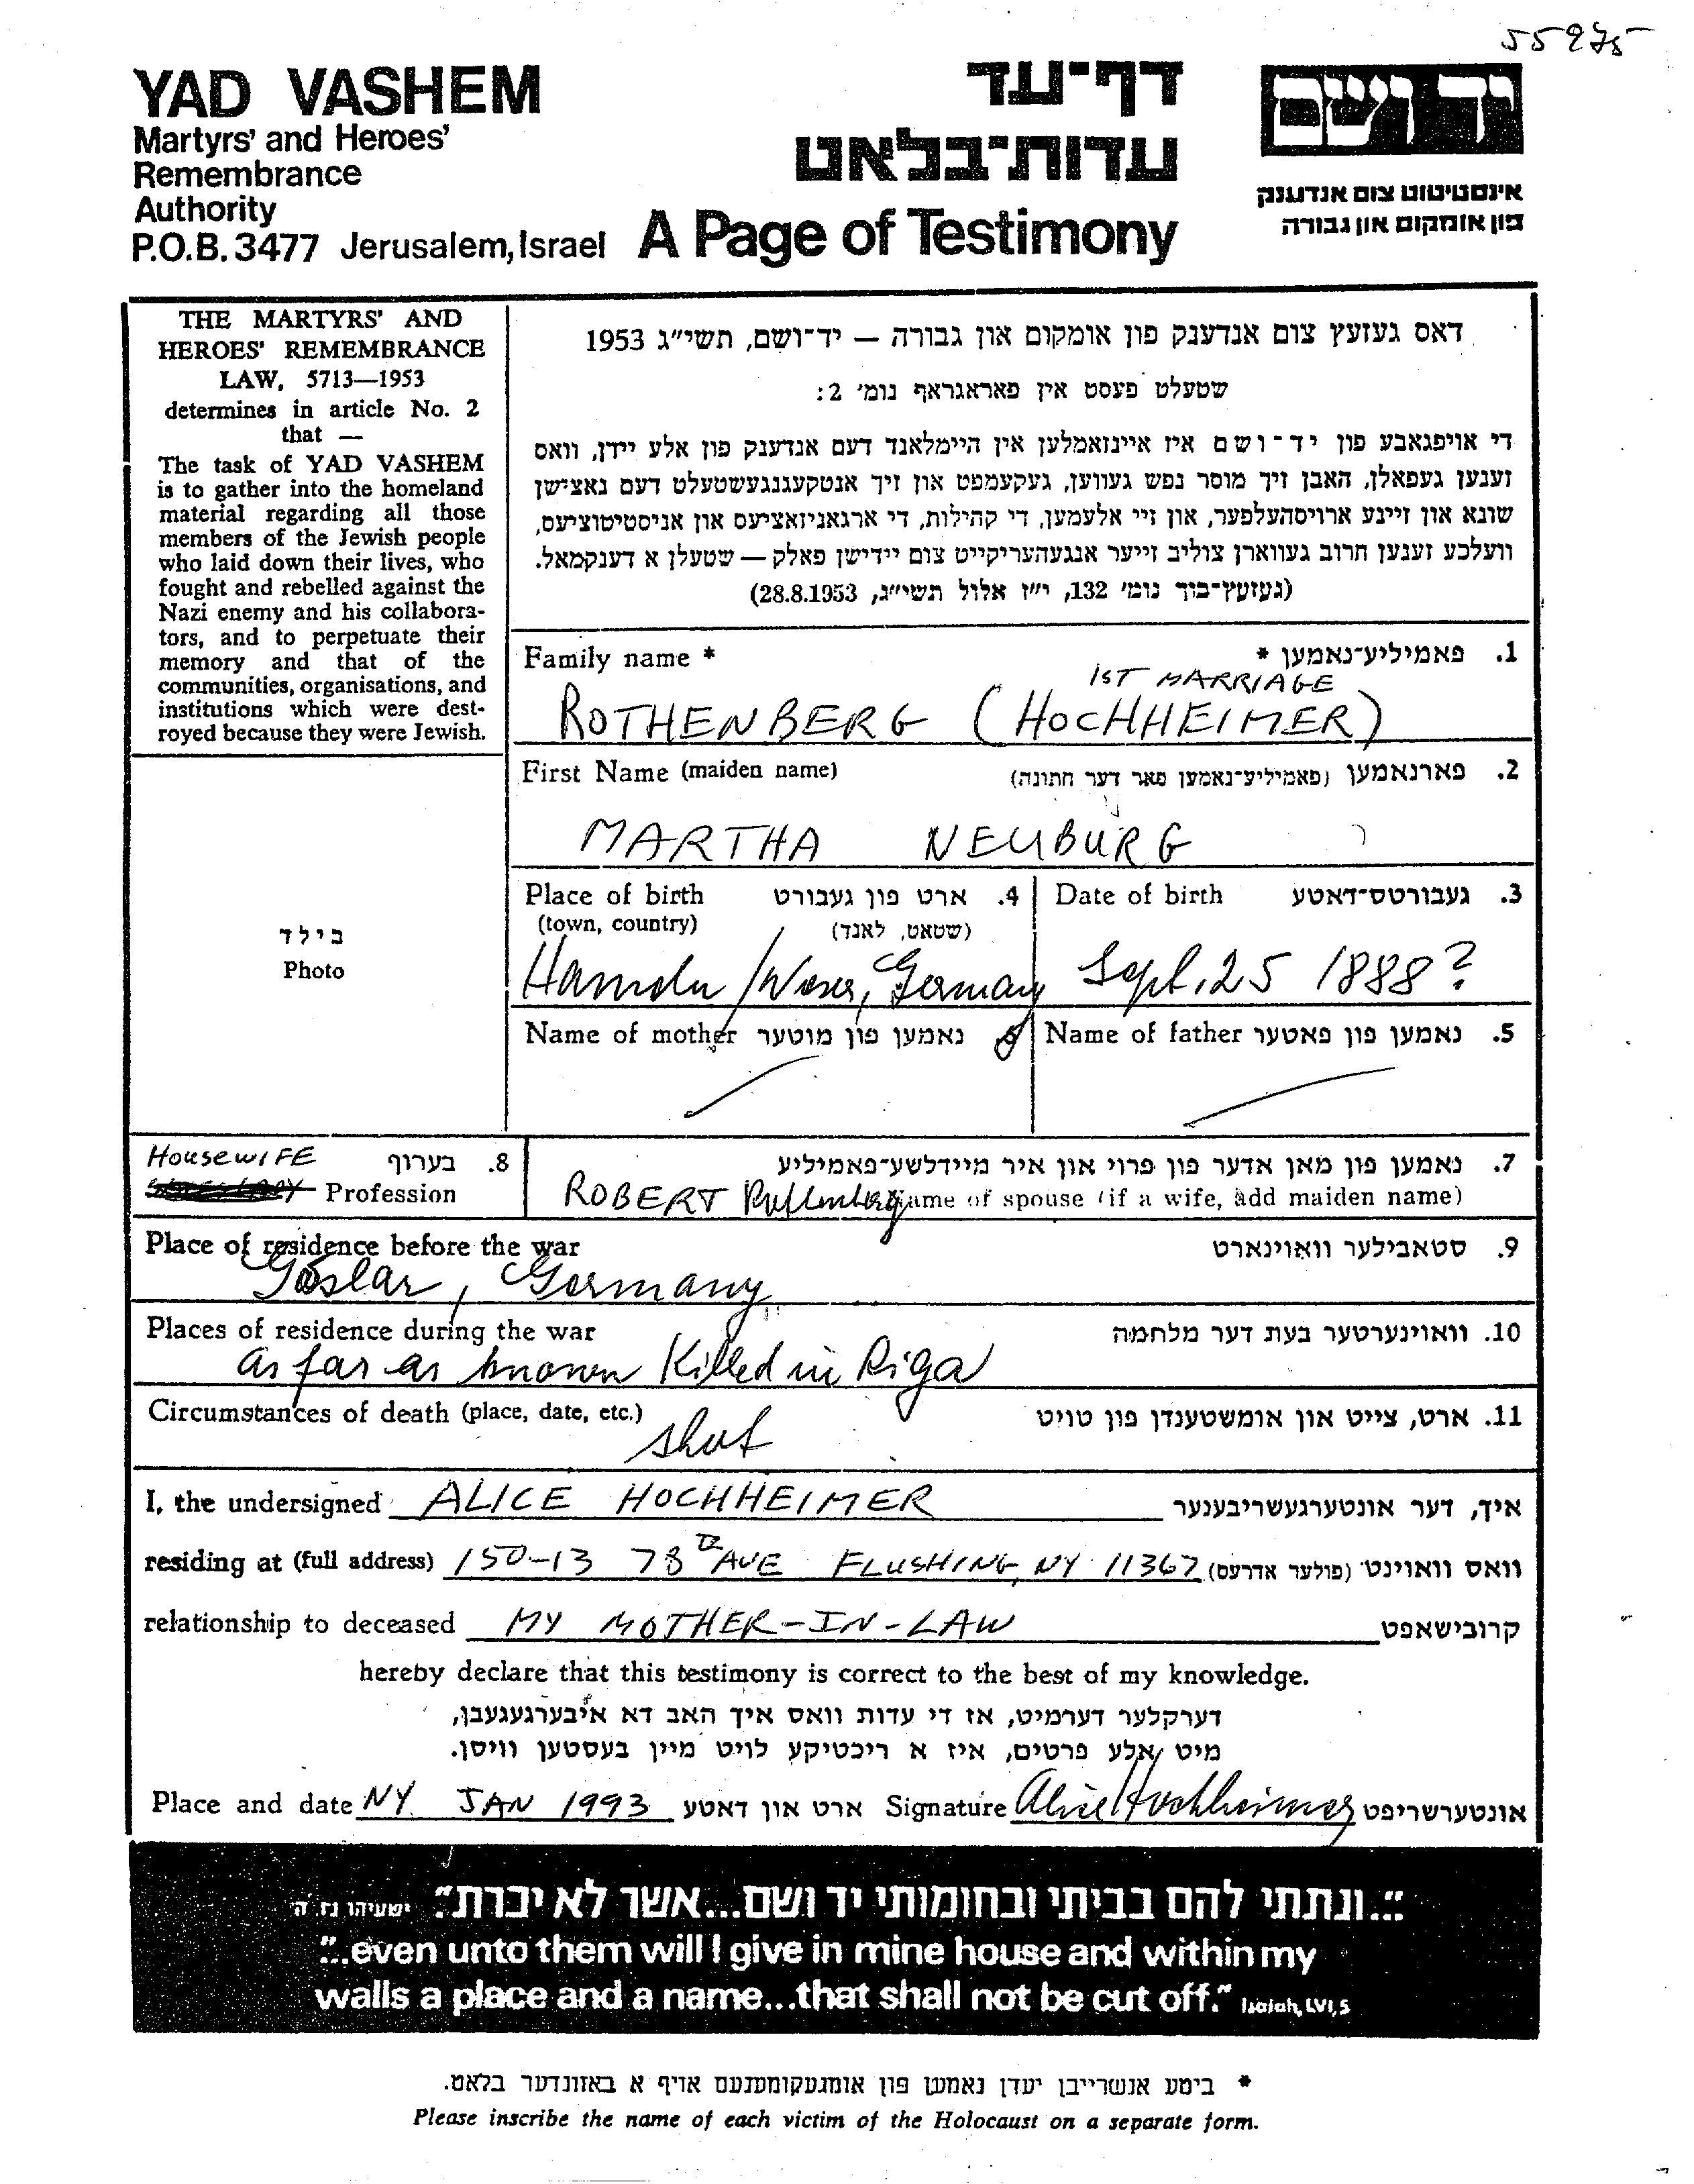 55975
YAD VASHEM
Martyrs' and Heroes'
Remembrance
Authority
P.O.B. 3477 Jerusalem, Israel
דף־עד
עדות־בלאט
A Page of Testimony
יד ושם
אינסטיטוט צום אנדענק
פון אומקום און גבורה
THE MARTYRS' AND
HEROES' REMEMBRANCE
LAW, 5713—1953
determines in article No. 2
that —
The task of YAD VASHEM
is to gather into the homeland
material regarding all those
members of the Jewish people
who laid down their lives, who
fought and rebelled against the
Nazi enemy and his collabora-
tors, and to perpetuate their
memory and that of the
communities, organisations, and
institutions which were dest-
royed because they were Jewish.
דאס געזעץ צום אנדענק פון אומקום און גבורה — יד־ושם, תשי״ג 1953
שטעלט פעסט אין פאראגראף נומ׳ 2:
די אויפגאבע פון יד־ושם איז איינזאמלען אין היימלאנד דעם אנדענק פון אלע יידן, וואס
זענען געפאלן, האבן זיך מוסר נפש געווען, געקעמפט און זיך אנטקעגנגעשטעלט דעם נאצישן
שונא און זיינע ארויסהעלפער, און זיי אלעמען, די קהילות, די ארגאניזאציעס און אניסטיטוציעס,
וועלכע זענען חרוב געווארן צוליב זייער אנגעהעריקייט צום יידישן פאלק — שטעלן א דענקמאל.
(געזעץ־בוך נומ׳ 132, י״ז אלול תשי״ג, 28.8.1953)
Family name * פאמיליע־נאמען * .1
1ST MARRIAGE
ROTHENBERG (HOCHHEIMER)
First Name (maiden name) פארנאמען (פאמיליע־נאמען פאר דער חתונה) .2
MARTHA NEUBURG
Place of birth ארט פון געבורט .4 Date of birth געבורטס־דאטע .3
(town, country) (שטאט, לאנד)
Hameln / Weser, Germany Sept. 25 1888?
בילד
Photo
Name of mother נאמען פון מוטער 6 Name of father נאמען פון פאטער .5
HOUSEWIFE בערוף .8 נאמען פון מאן אדער פון פרוי און איר מיידלשע־פאמיליע .7
Profession ROBERT Rothenberg Name of spouse (if a wife, add maiden name)
Place of residence before the war סטאבילער וואוינארט .9
Goslar, Germany
Places of residence during the war וואוינערטער בעת דער מלחמה .10
as far as known Killed in Riga
Circumstances of death (place, date, etc.) ארט, צייט און אומשטענדן פון טויט .11
shot
I, the undersigned ALICE HOCHHEIMER איך, דער אונטערגעשריבענער
residing at (full address) 150-13 78 AVE FLUSHING, NY 11367 וואס וואוינט (פולער אדרעס)
relationship to deceased MY MOTHER-IN-LAW קרובישאפט
hereby declare that this testimony is correct to the best of my knowledge.
דערקלער דערמיט, אז די עדות וואס איך האב דא איבערגעגעבן,
מיט אלע פרטים, איז א ריכטיקע לויט מיין בעסטען וויסן.
Place and date NY JAN 1993 ארט און דאטע Signature Alice Hochheimer אונטערשריפט
״...ונתתי להם בביתי ובחומותי יד ושם...אשר לא יכרת״ ישעיהו נו ה׳
"...even unto them will I give in mine house and within my
walls a place and a name...that shall not be cut off." Isaiah, LVI,5
* ביטע אנשרייבן יעדן נאמען פון אומגעקומענעם אויף א באזונדער בלאט.
Please inscribe the name of each victim of the Holocaust on a separate form.